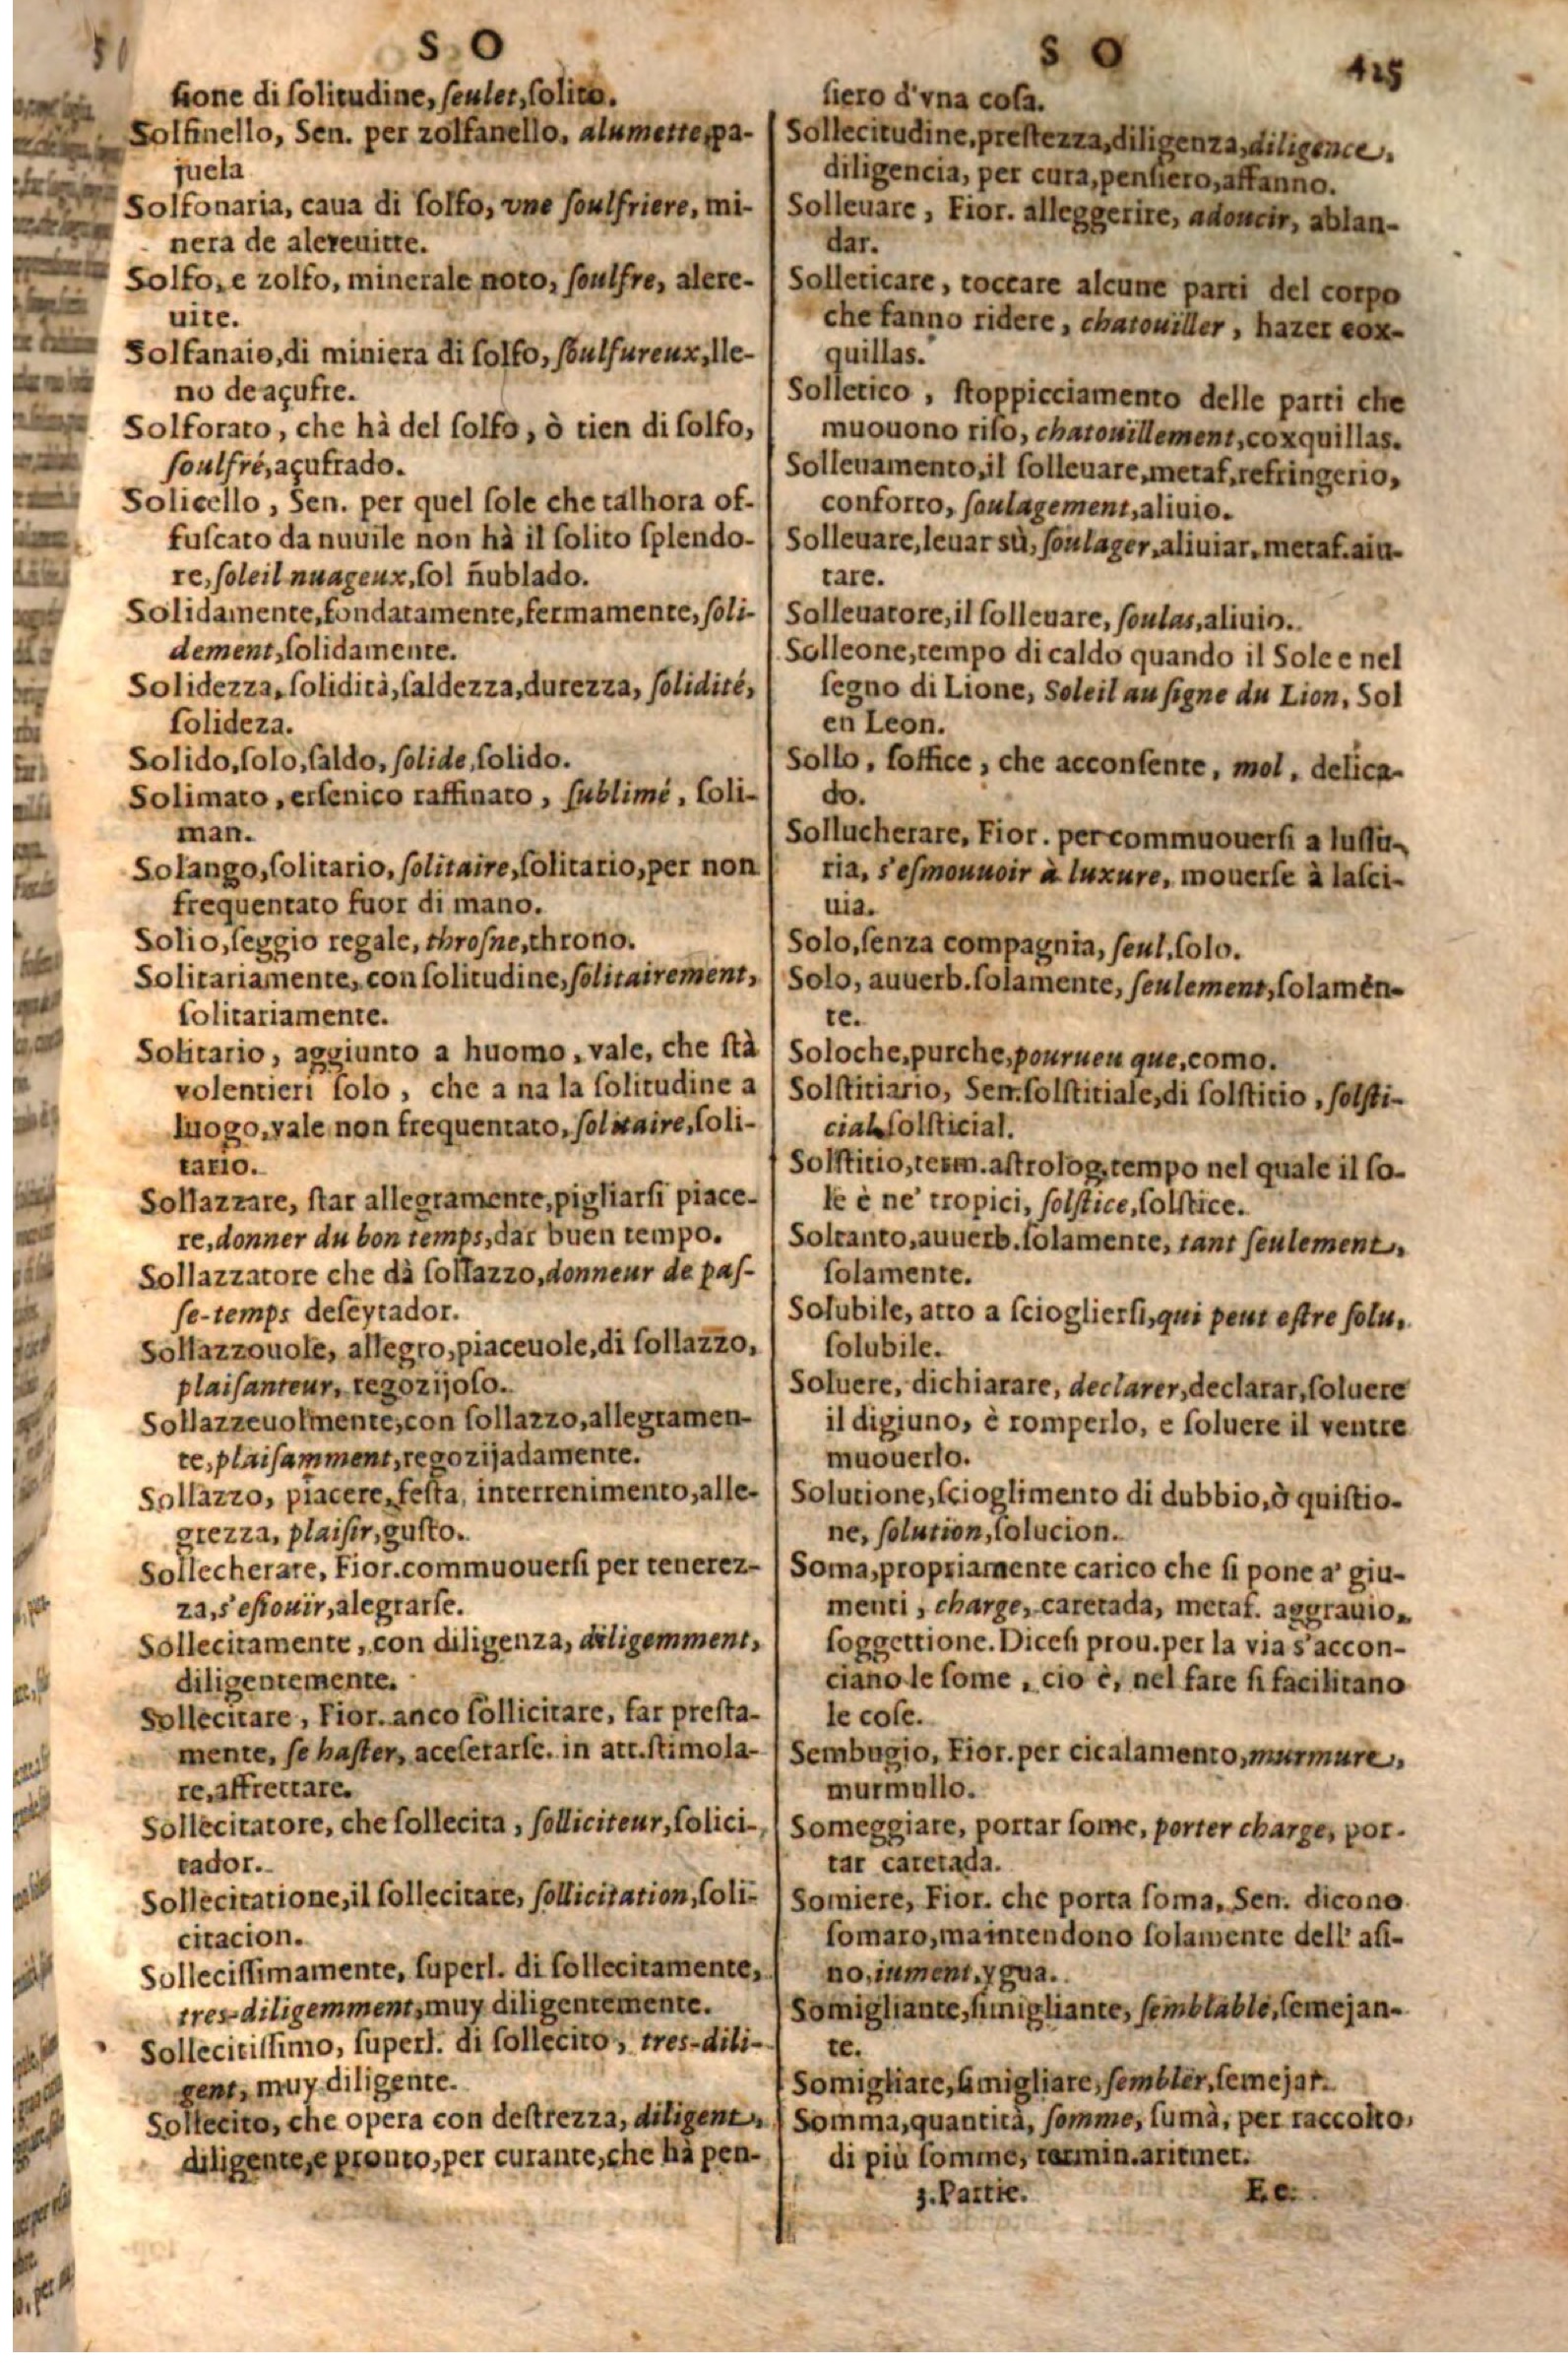 S O
ſione di ſolitudine, ſeulet, ſolito.
Solfinello, Sen. per zolfanello, alumette, pa-
juela
Solfonaria, caua di ſolfo, vne ſoulfriere, mi-
nera de alereuitte.
Solfo, e zolfo, minerale noto, ſoulfre, alere-
uite.
Solfanaio, di miniera di ſolfo, ſoulfureux, lle-
no de açufre.
Solforato, che hà del ſolfo, ò tien di ſolfo,
ſoulfré, açufrado.
Solicello, Sen. per quel ſole che talhora of-
fuſcato da nuuile non hà il ſolito ſplendo-
re, ſoleil nuageux, ſol ñublado.
Solidamente, fondatamente, fermamente, ſoli-
dement, ſolidamente.
Solidezza, ſolidità, ſaldezza, durezza, ſolidité,
ſolideza.
Solido, ſolo, ſaldo, ſolide, ſolido.
Solimato, erſenico raffinato, ſublimé, ſoli-
man.
Solango, ſolitario, ſolitaire, ſolitario, per non
frequentato fuor di mano.
Solio, ſeggio regale, throſne, throno.
Solitariamente, con ſolitudine, ſolitairement,
ſolitariamente.
Solitario, aggiunto a huomo, vale, che ſtà
volentieri ſolo, che a na la ſolitudine a
luogo, vale non frequentato, ſolitaire, ſoli-
tario.
Sollazzare, ſtar allegramente, pigliarſi piace-
re, donner du bon temps, dar buen tempo.
Sollazzatore che dà ſollazzo, donneur de paſ-
ſe-temps deſeytador.
Sollazzouole, allegro, piaceuole, di ſollazzo,
plaiſanteur, regozijoſo.
Sollazzeuolmente, con ſollazzo, allegramen-
te, plaiſamment, regozijadamente.
Sollazzo, piacere, feſta, interrenimento, alle-
grezza, plaiſir, guſto.
Sollecherare, Fior. commuouerſi per tenerez-
za, s'eſiouïr, alegrarſe.
Sollecitamente, con diligenza, diligemment,
diligentemente.
Sollecitare, Fior. anco ſollicitare, far preſta-
mente, ſe haſter, aceſerarſe. in att. ſtimola-
re, affrettare.
Sollecitatore, che ſollecita, ſolliciteur, ſolici-
tador.
Sollecitatione, il ſollecitare, ſollicitation, ſoli-
citacion.
Solleciſſimamente, ſuperl. di ſollecitamente,
tres-diligemment, muy diligentemente.
Sollecitiſſimo, ſuperl. di ſollecito, tres-dili-
gent, muy diligente.
Sollecito, che opera con deſtrezza, diligent,
diligente, e pronto, per curante, che hà pen-
S O 425
ſiero d'vna coſa.
Sollecitudine, preſtezza, diligenza, diligence,
diligencia, per cura, penſiero, affanno.
Solleuare, Fior. alleggerire, adoucir, ablan-
dar.
Solleticare, toccare alcune parti del corpo
che fanno ridere, chatouiller, hazer cox-
quillas.
Solletico, ſtoppicciamento delle parti che
muouono riſo, chatouillement, coxquillas.
Solleuamento, il ſolleuare, metaf, refringerio,
conforto, ſoulagement, aliuio.
Solleuare, leuar sù, ſoulager, aliuiar, metaf. aiu-
tare.
Solleuatore, il ſolleuare, ſoulas, aliuio.
Solleone, tempo di caldo quando il Sole e nel
ſegno di Lione, Soleil au ſigne du Lion, Sol
en Leon.
Sollo, ſoffice, che acconſente, mol, delica-
do.
Sollucherare, Fior. per commuouerſi a luſſu-
ria, s'eſmouuoir à luxure, mouerſe à laſci-
uia.
Solo, ſenza compagnia, ſeul, ſolo.
Solo, auuerb. ſolamente, ſeulement, ſolamen-
te.
Soloche, purche, pourueu que, como.
Solſtitiario, Sen. ſolſtitiale, di ſolſtitio, ſolſti-
cial, ſolſticial.
Solſtitio, term. aſtrolog, tempo nel quale il ſo-
le è ne' tropici, ſolſtice, ſolſtice.
Soltanto, auuerb. ſolamente, tant ſeulement,
ſolamente.
Solubile, atto a ſcioglierſi, qui peut eſtre ſolu,
ſolubile.
Soluere, dichiarare, declarer, declarar, ſoluere
il digiuno, è romperlo, e ſoluere il ventre
muouerlo.
Solutione, ſcioglimento di dubbio, ò quiſtio-
ne, ſolution, ſolucion.
Soma, propriamente carico che ſi pone a' giu-
menti, charge, caretada, metaf. aggrauio,
ſoggettione. Diceſi prou. per la via s'accon-
ciano le ſome, cio è, nel fare ſi facilitano
le coſe.
Sembugio, Fior. per cicalamento, murmure,
murmullo.
Someggiare, portar ſome, porter charge, por-
tar caretada.
Somiere, Fior. che porta ſoma, Sen. dicono
ſomaro, ma intendono ſolamente dell' aſi-
no, iument, ygua.
Somigliante, ſimigliante, ſemblable, ſemejan-
te.
Somigliare, ſimigliare, ſembler, ſemejar.
Somma, quantità, ſomme, ſumà, per raccolto
di più ſomme, termin. aritmet.
3. Partie. E e